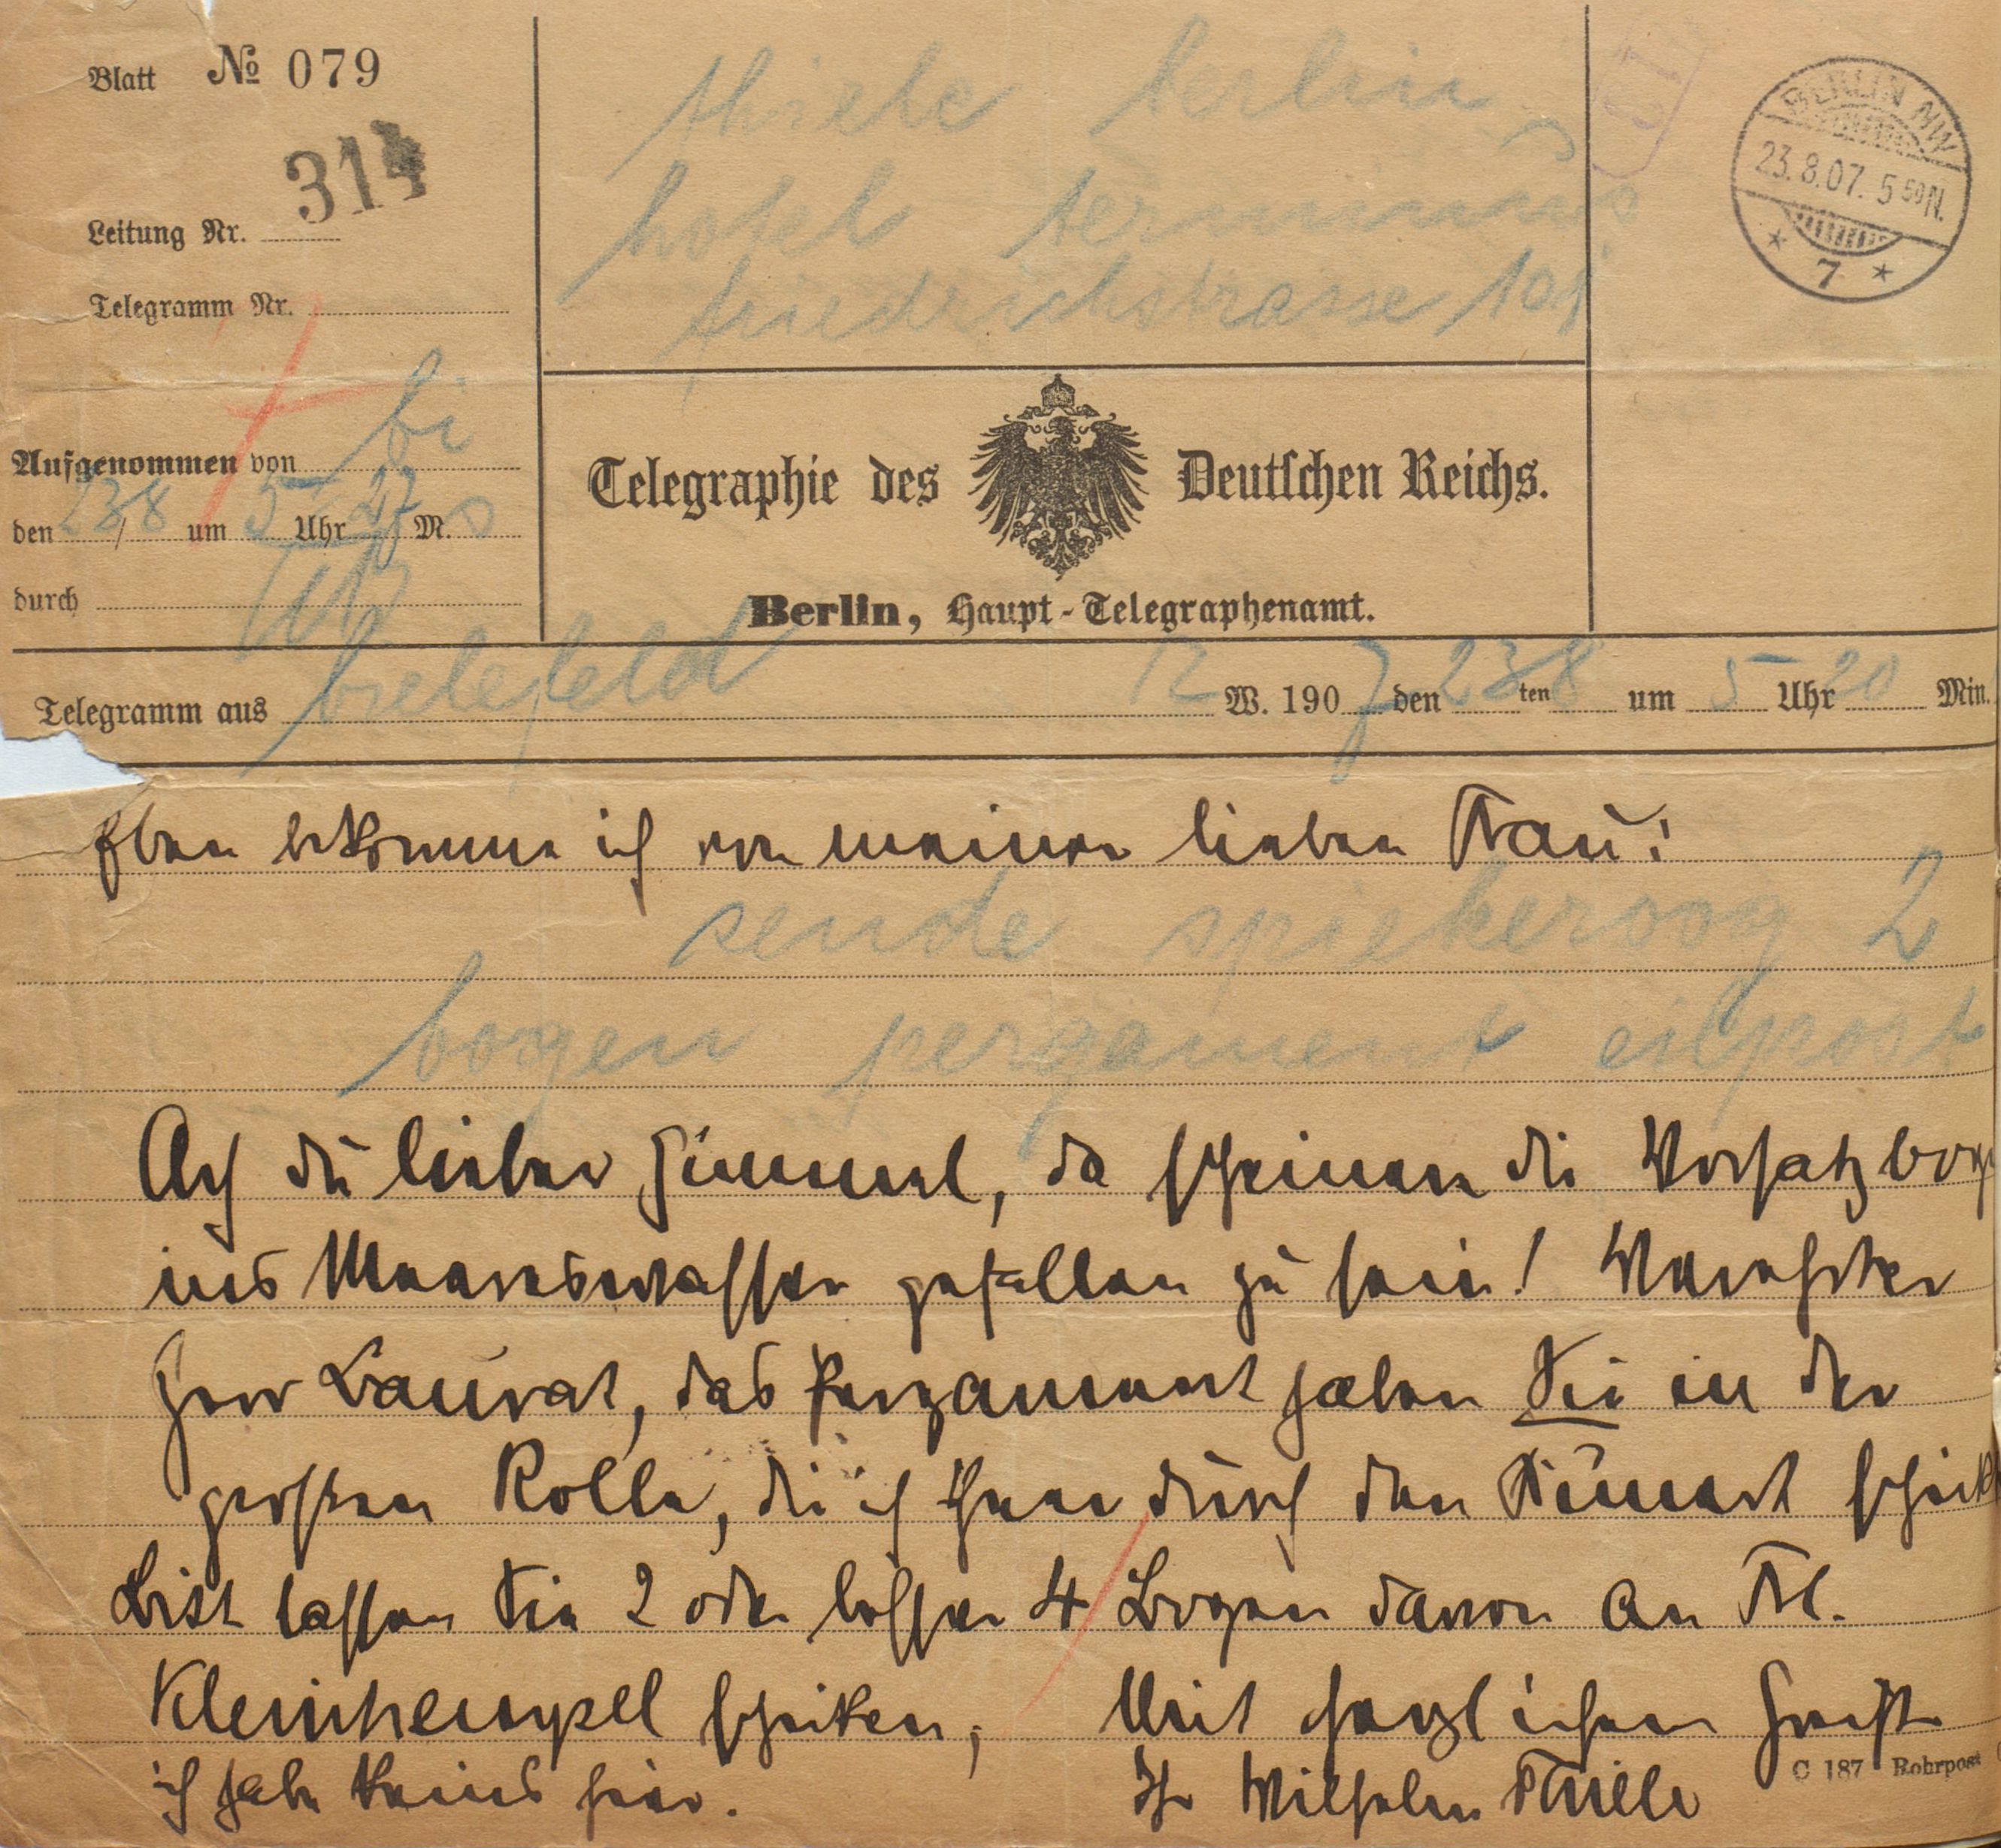 Blatt № 079
314
Leitung Nr.
Telegramm Nr.
thiele berlin
hotel terminus
friedrichstrasse 101
BERLIN NW
23.8.07. 5 50N.
* 7 *
Aufgenommen von bi
den 23/8 um 5 Uhr 27 M. s
durch
Telegraphie des Deutschen Reichs.
Berlin, Haupt-Telegraphenamt.
Telegramm aus bielefeld 12 W. 1907 den 23ten 8 um 5 Uhr 20 Min.
Eben bekomme ich von meiner lieben Frau:
sende spiekeroog 2
bogen pergament eilpost
Ach du lieber Himmel, da scheinen die Vorsatzbogen
ins Meereswasser gefallen zu sein! Verehrter
Herr Baurat, das Pergament haben Sie in der
großen Rolle, die ich Ihnen durch den Dienert schickte
Bitte lassen Sie 2 oder besser 4 Bogen davon an Frl.
Kleinhempel schicken, Mit herzlichem Gruß
ich habe keins hier. Ihr Wilhelm Thiele
C 187 Rohrpost